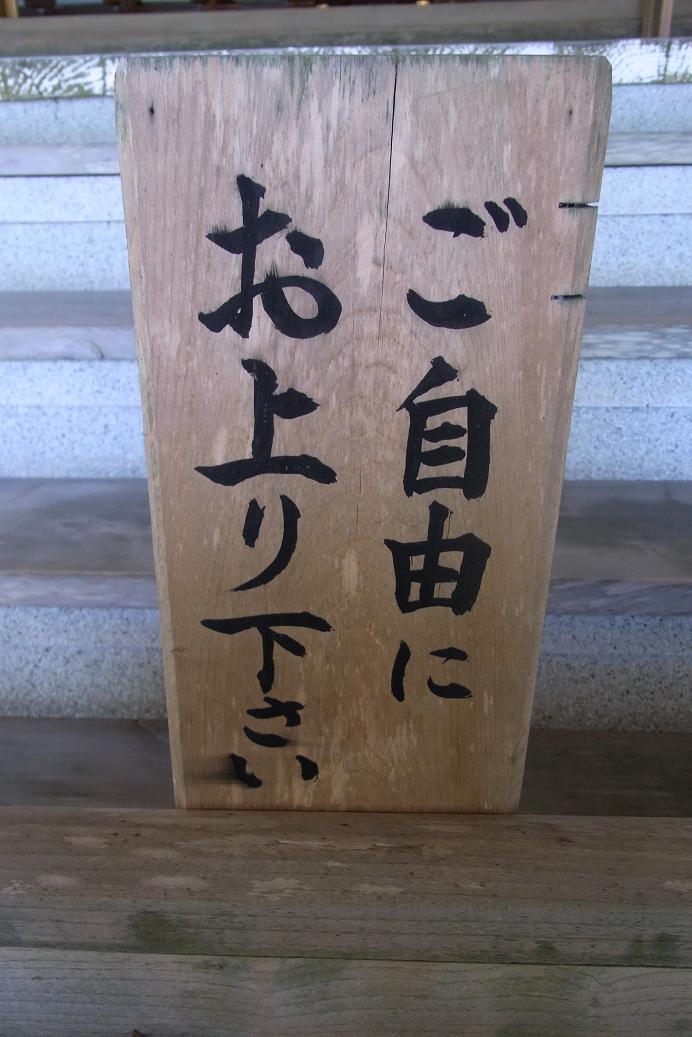 ご自由に
お上り下さい